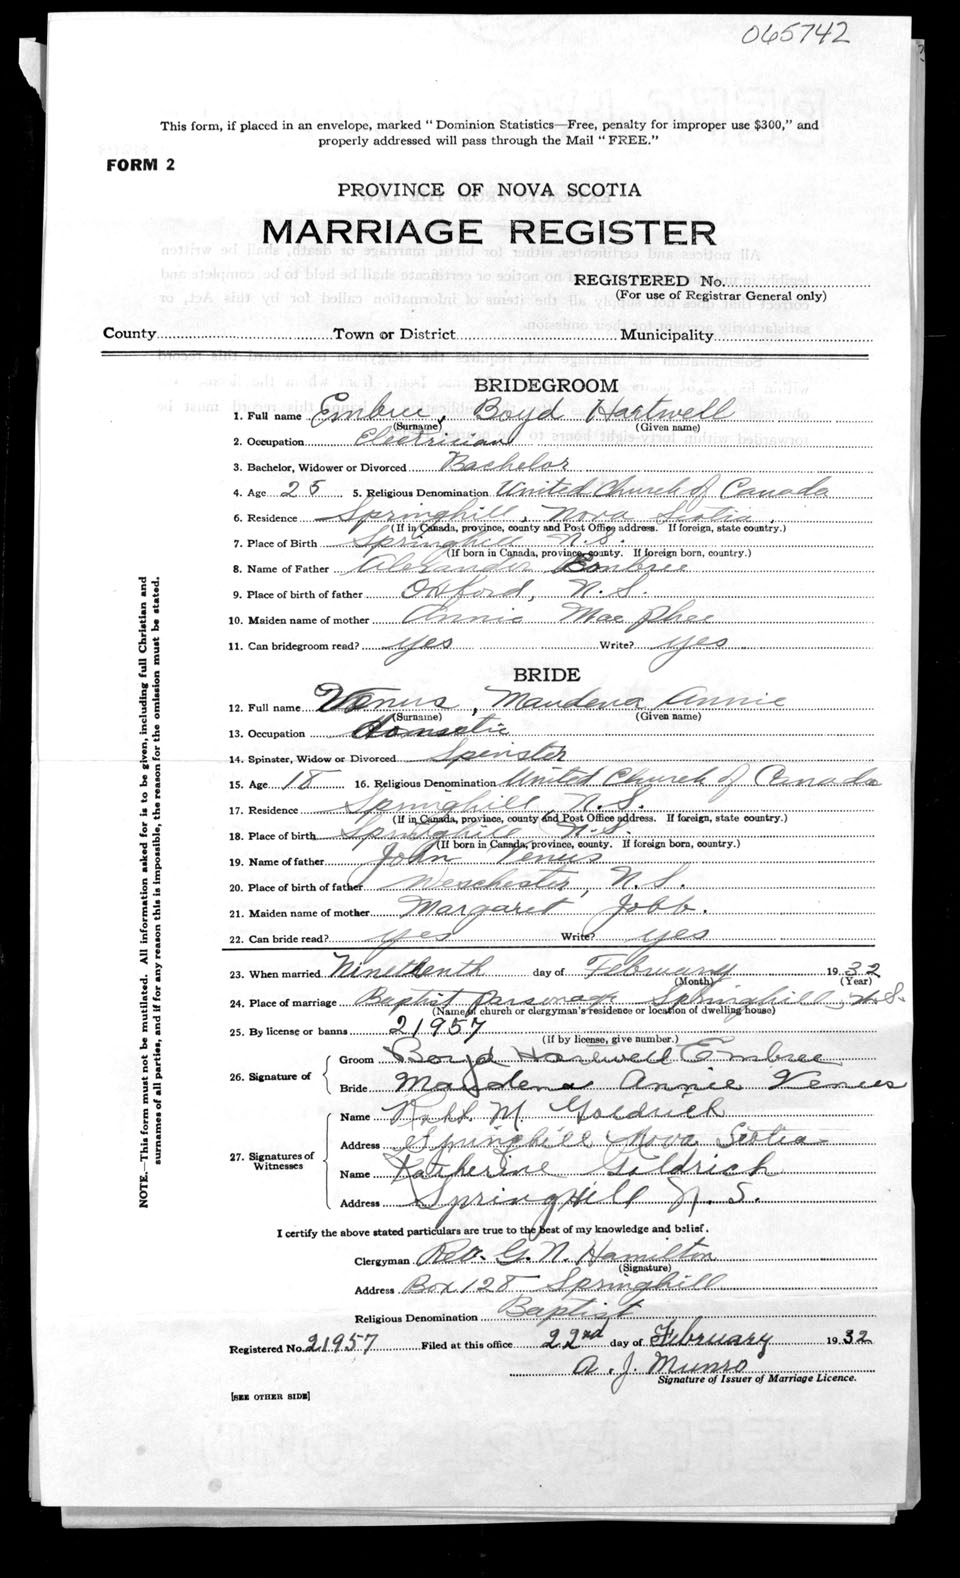 065742
This form, if placed in an envelope, marked "Dominion Statistics—Free, penalty for improper use $300," and
properly addressed will pass through the Mail "FREE."
FORM 2
PROVINCE OF NOVA SCOTIA
MARRIAGE REGISTER
REGISTERED No.
(For use of Registrar General only)
County Town or District Municipality
BRIDEGROOM
1. Full name Embree, Boyd Hartwell
(Surname) (Given name)
2. Occupation Electrician
3. Bachelor, Widower or Divorced Bachelor
4. Age 25 5. Religious Denomination United Church of Canada
6. Residence Springhill, Nova Scotia
(If in Canada, province, county and Post Office address. If foreign, state country.)
7. Place of Birth Springhill N.S.
(If born in Canada, province, county. If foreign born, country.)
8. Name of Father Alexander Embree
9. Place of birth of father Oxford, N.S.
10. Maiden name of mother Annie MacPhee
11. Can bridegroom read? yes Write? yes
BRIDE
12. Full name Venus, Maudena Annie
(Surname) (Given name)
13. Occupation domestic
14. Spinster, Widow or Divorced Spinster
15. Age 18 16. Religious Denomination United Church of Canada
17. Residence Springhill, N.S.
(If in Canada, province, county and Post Office address. If foreign, state country.)
18. Place of birth Springhill N.S.
(If born in Canada, province, county. If foreign born, country.)
19. Name of father John Venus
20. Place of birth of father Wenchester, N.S.
21. Maiden name of mother Margaret Jobb.
22. Can bride read? yes Write? yes
23. When married Nineteenth day of February 1932
(Month) (Year)
24. Place of marriage Baptist Parsonage Springhill N.S.
(Name of church or clergyman's residence or location of dwelling house)
25. By license or banns 21957
(If by license, give number.)
26. Signature of
Groom Boyd Hartwell Embree
Bride Maudena Annie Venus
27. Signatures of Witnesses
Name M. Goldrich
Address Springhill Nova Scotia
Name Katherine Goldrich
Address Springhill N.S.
I certify the above stated particulars are true to the best of my knowledge and belief.
Clergyman Rev. G. N. Hamilton
(Signature)
Address Box 128 Springhill
Religious Denomination Baptist
Registered No. 21957 Filed at this office 22nd day of February 1932
A. J. Munro
Signature of Issuer of Marriage Licence.
[SEE OTHER SIDE]
NOTE.—This form must not be mutilated. All information asked for is to be given, including full Christian and
surnames of all parties, and if for any reason this is impossible, the reason for the omission must be stated.